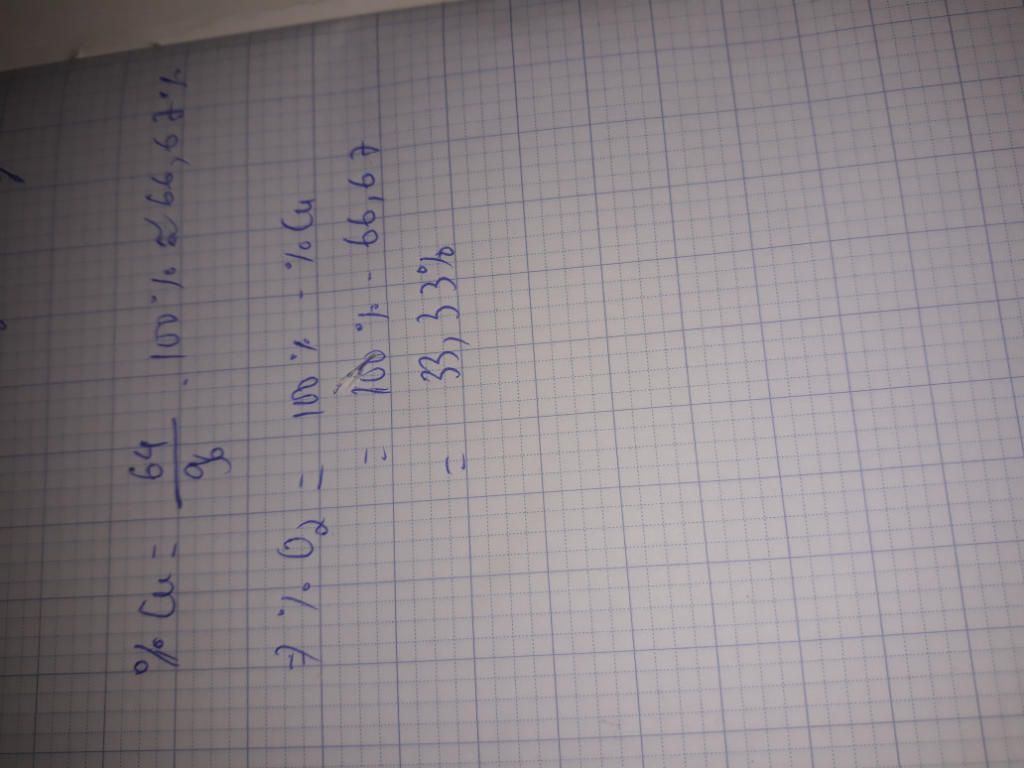 % Cu = 64/96 . 100% ≈ 66,67%
=> % O2 = 100% - % Cu
= 100% - 66,67
= 33,33%